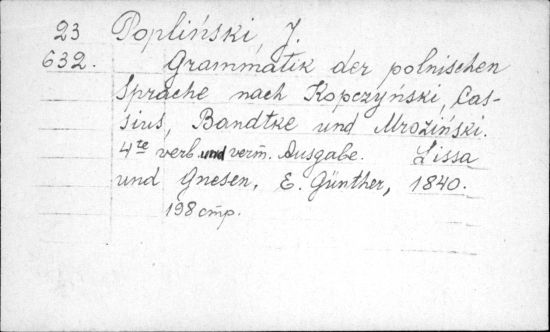 23 Popliński, J.
632. Grammatik der polnischen
Sprache nach Kopczyński, Cas-
sius, Bandtke und Mroziński.
4te verb. und verm. Ausgabe. Lissa
und Gnesen, E. Günther, 1840.
198 стр.